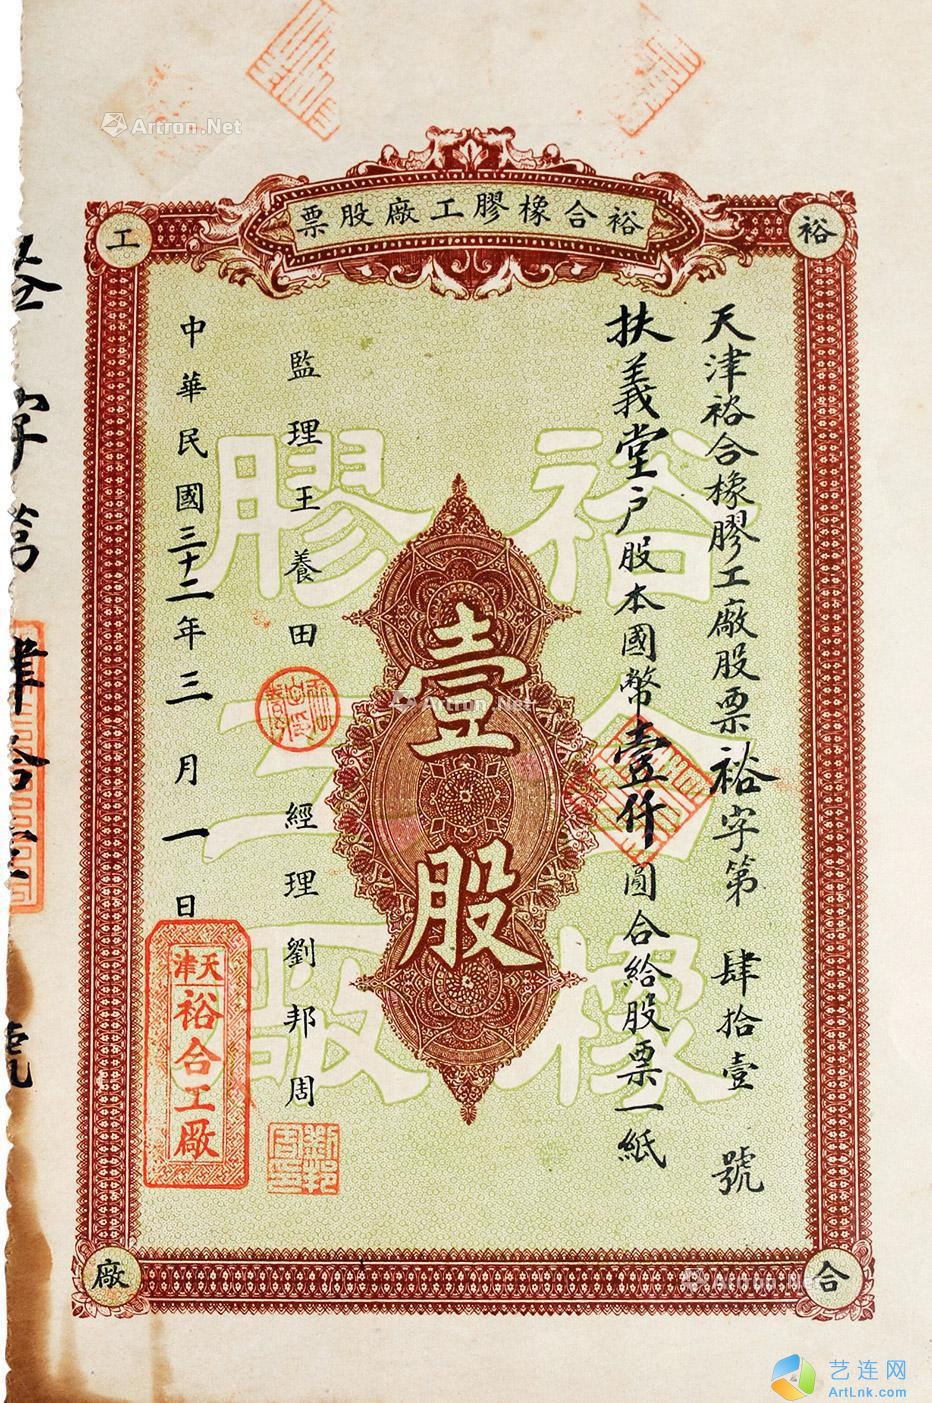 裕合橡膠工廠股票
裕
合
工
廠
天津裕合橡膠工廠股票裕字第肆拾壹號
扶義堂户股本國幣壹仟圓合給股票一紙
裕合橡
膠工廠
壹股
監理王養田
經理劉邦周
中華民國三十二年三月一日
天津
裕合工廠
劉邦周印
Artron.Net
Artron.Net
Artron.Net
艺连网
ArtLnk.com